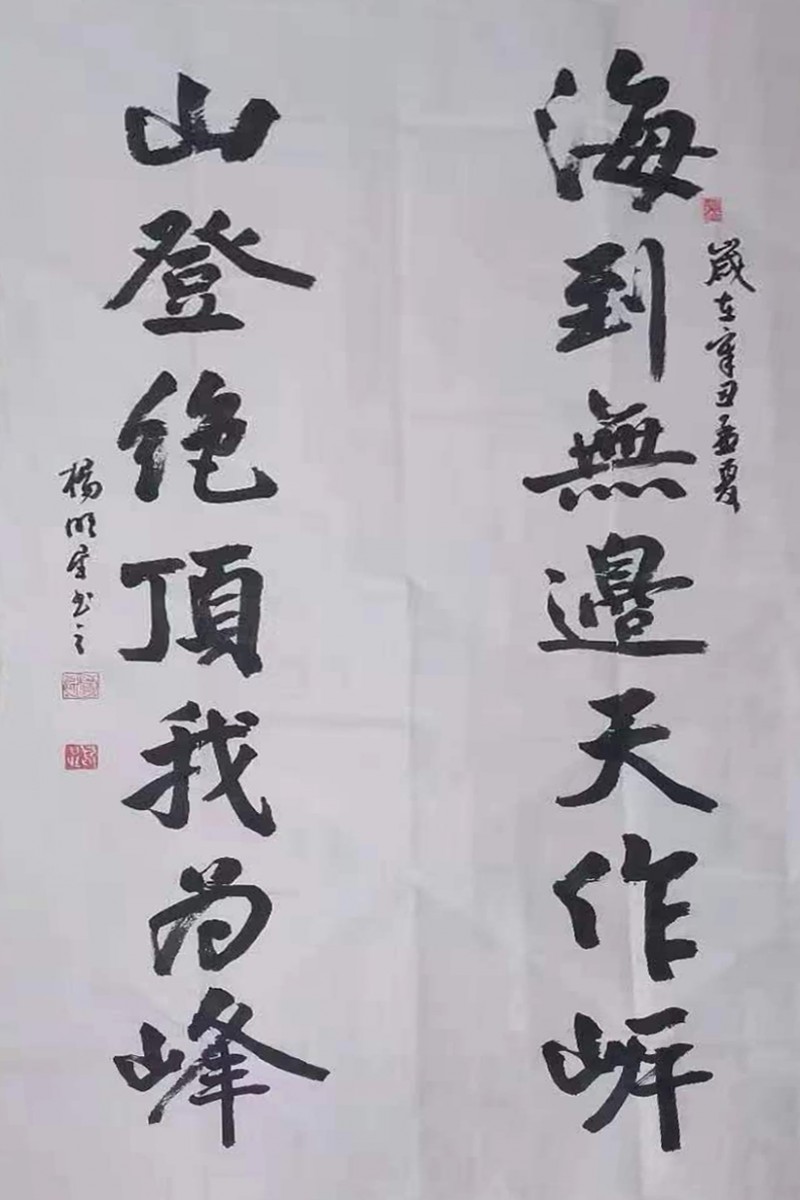 海到無邊天作岸
歲在辛丑孟夏
山登绝頂我为峰
楊明 书之